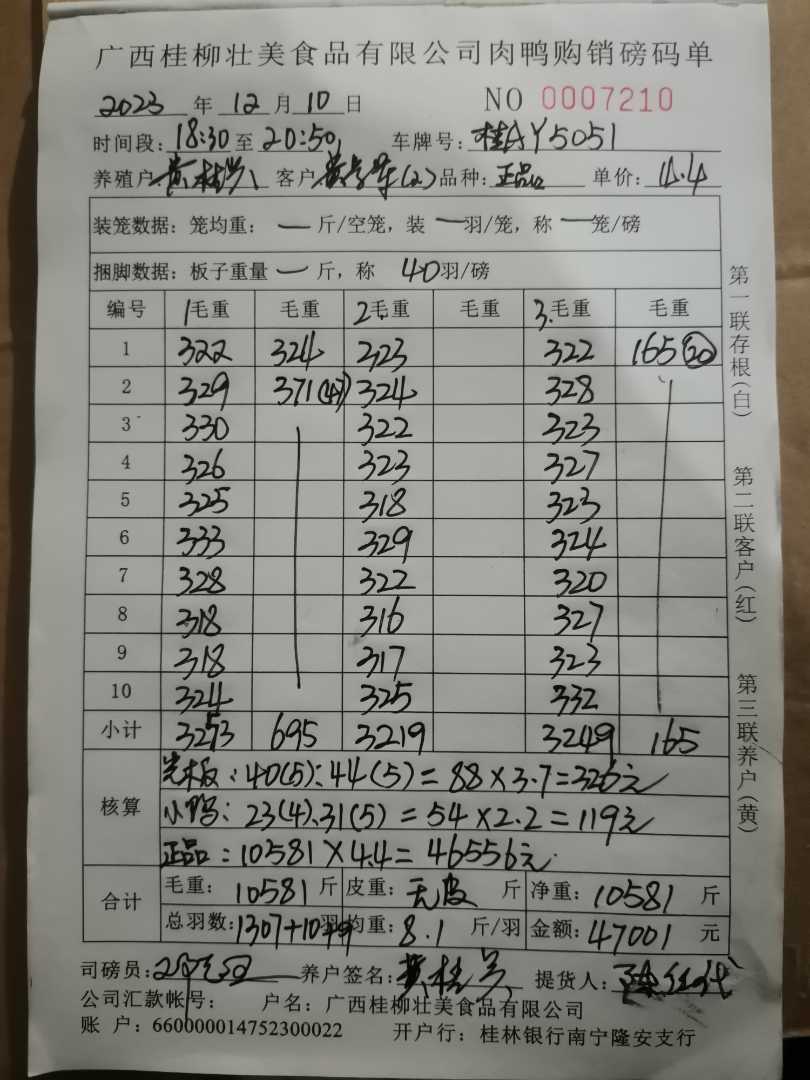 广西桂柳壮美食品有限公司肉鸭购销磅码单
2023 年 12 月 10 日 NO 0007210
时间段: 18:30 至 20:50 车牌号: 桂AY5051
养殖户: 黄桂兴 客户 (2) 品种: 正品 单价: 4.4
装笼数据: 笼均重: 一 斤/空笼, 装 一 羽/笼, 称 一 笼/磅
捆脚数据: 板子重量 一 斤, 称 40 羽/磅
编号 1毛重 毛重 2毛重 毛重 3.毛重 毛重
1 322 324 323 322 165(20)
2 329 371(47) 324 328
3 330 322 323
4 326 323 327
5 325 318 323
6 333 329 324
7 328 322 320
8 318 316 327
9 318 317 323
10 324 325 332
小计 3253 695 3219 3249 165
核算
光板: 40(5): 44(5) = 88 × 3.7 = 326元
小鸭: 23(4).31(5) = 54 × 2.2 = 119元
正品: 10581 × 4.4 = 46556元
合计
毛重: 10581 斤 皮重: 无皮 斤 净重: 10581 斤
总羽数: 1307+10+9 羽 均重: 8.1 斤/羽 金额: 47001 元
司磅员: 养户签名: 黄桂兴 提货人:
公司汇款帐号: 户名: 广西桂柳壮美食品有限公司
账 户: 660000014752300022 开户行: 桂林银行南宁隆安支行
第一联存根(白) 第二联客户(红) 第三联养户(黄)